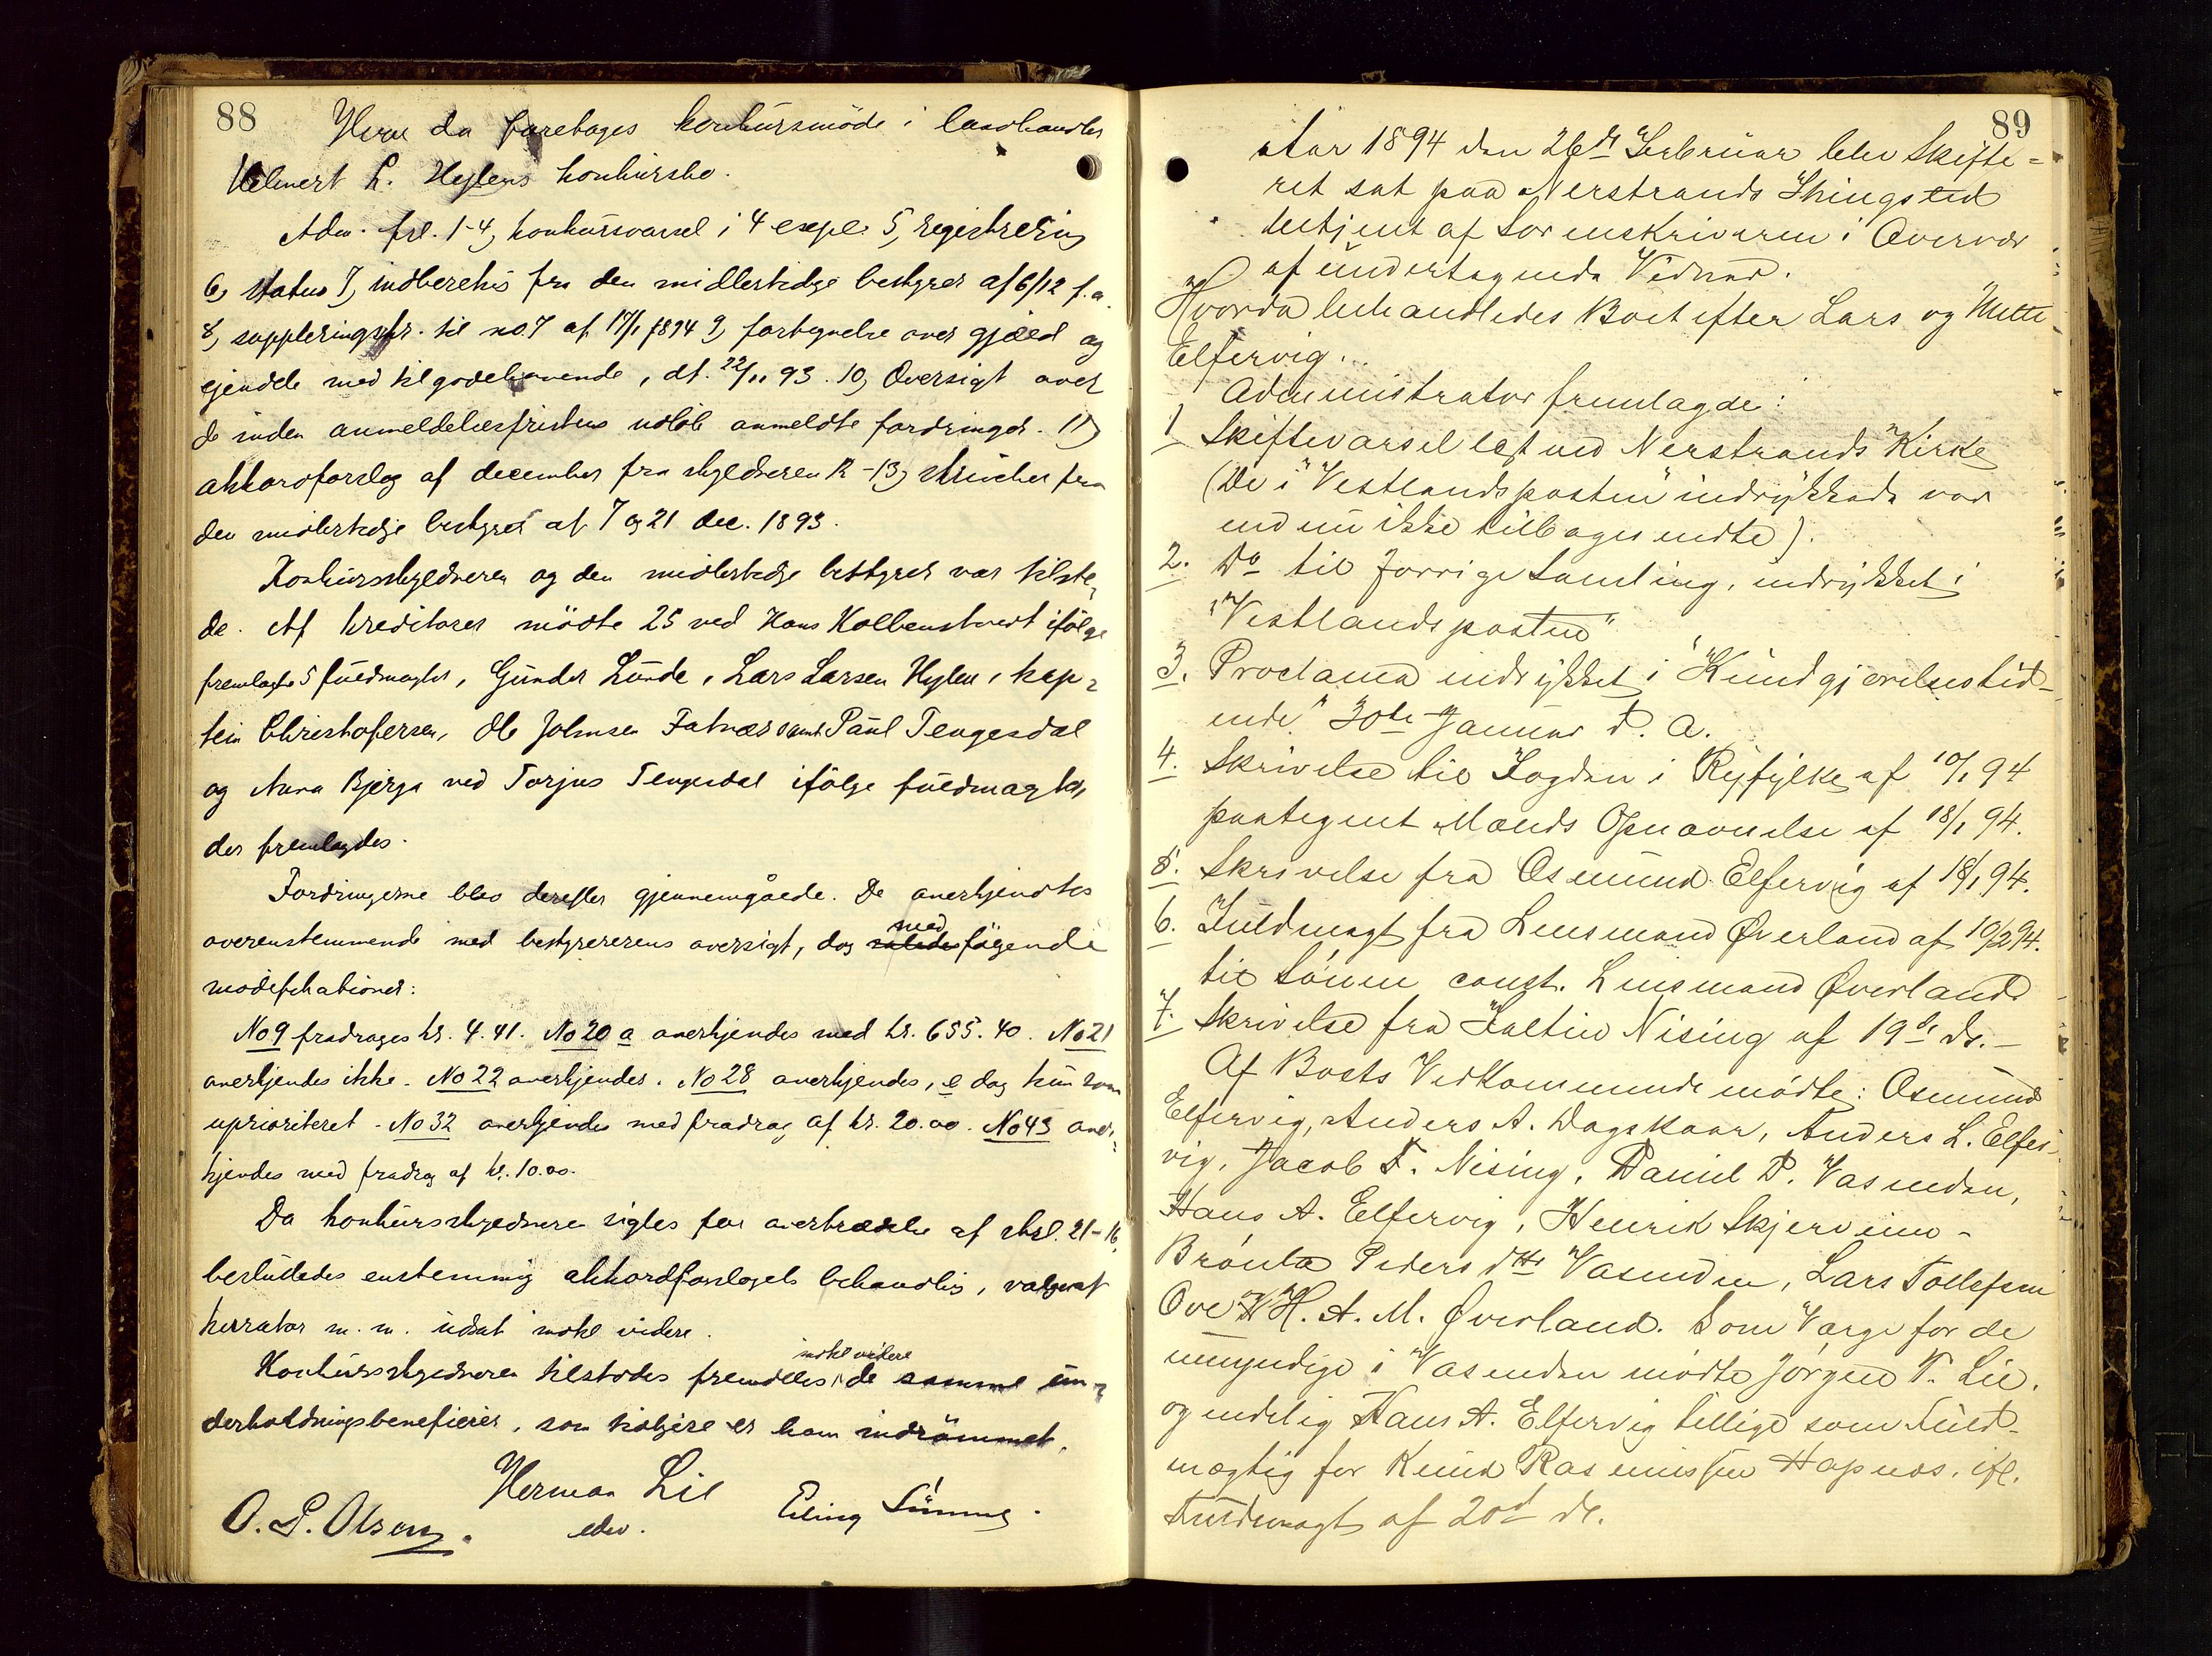 88
Hvor da foretages konkursmöde i landhandler
Helmert L. Hylens konkursbo.
Adm. frl. 1-4, konkursvarsel i 4 expl. 5, registrering
6, status 7, indberetn̄s fra den midlertidige bestyrer af 6/12 f. a.
8, suppleringsskr. til no. 7 af 17/1 1894 9, fortegnelse over gjæld og
ejendele med tilgodehavende, dt. 22/11 93. 10, Oversigt over
de inden anmeldelsesfristens udlöb anmeldte fordringer. 11)
akkordforslag af december fra skyldneren 12-13, skrivelser fra
den midlertidige bestyrer af 7 og 21 dec. 1893.
Konkursskyldneren og den midlertidige bestyrer var tilste-
de. Af kreditorer mödte 25 ved Hans Kolbenstvedt ifölge
fremlagte 5 fuldmagter, Gunder Lunde, Lars Larsen Hylen, kap-
tein Christophersen, Ole Johnsen Fatnæs samt Paul Tengesdal
og Anna Bjerga ved Torjus Tengesdal ifölge fuldmagter,
der fremlagdes.
Fordringerne blev derefter gjennemgåede. De anerkjendtes
overenstemmende med bestyrererens oversigt, dog således med fölgende
modifikationer:
No 9 fradrages kr. 4.41. No 20 a anerkjendes med kr. 655.40. No 21
anerkjendes ikke. No 22 anerkjendes. No 28 anerkjendes, dog kun som
uprioriteret. No 32 anerkjendes med fradrag af kr. 20.00. No 43 aner-
kjendes med fradrag af kr. 10.00.
Da konkursskyldneren sigtes for overtrædelse af strl. 21-16,
besluttedes enstemmig akkordforslagets behandling, valg af
kurator m. m. udsat indtil videre.
Konkursskyldneren tilstodes fremdeles indtil videre de samme un-
derholdningsbeneficier, som tidligere er ham indrömmet.
Herman Lie
O. P. Olsen. edsv. Elling Sunne.
89
Aar 1894 den 26de Februar blev Skifte-
ret sat paa Nerstrands Thingsted
betjent af Sorenskriveren i Overvær
af undertegnede Vidner.
Hvorda behandledes Boet efter Lars og Mette
Elfervig.
Administrator fremlagde:
1 Skiftevarsel læst ved Nerstrands Kirke
(De i "Vestlandsposten" indrykkede var
endnu ikke tilbagesendte).
2. Do til forrige Samling, indrykket i
"Vestlandsposten"
3. Proclama indrykket i "Kundgjørelsestid-
ende" 30te Januar d. A.
4. Skrivelse til Fogden i Ryfylke af 10/1 94
paategnet Mænds Opnævnelse af 18/1 94.
5. Skrivelse fra Osmund Elfervig af 18/1 94.
6. Fuldmagt fra Lensmand Øverland af 10/2 94.
til Sønnen const. Lensmand Øverland
7. Skrivelse fra Faltin Nising af 19de ds. -
Af Boets Vedkommende mödte: Osmund
Elfervig, Anders A. Dagskaar, Anders L. Elfer-
vig, Jacob T. Nising, Daniel P. Vasenden,
Hans A. Elfervig, Henrik Skjerveim -
Brønla Pedersdtr Vasenden, Lars Tollefsen
Ove H. A. M. Øverland. Som Værge for de
umyndige i Vasenden mødte Jørgen T. Lie.
og endelig Hans A. Elfervig tillige som Fuld-
mægtig for Knud Rasmussen Hapnes. ifl.
Fuldmagt af 20d ds.